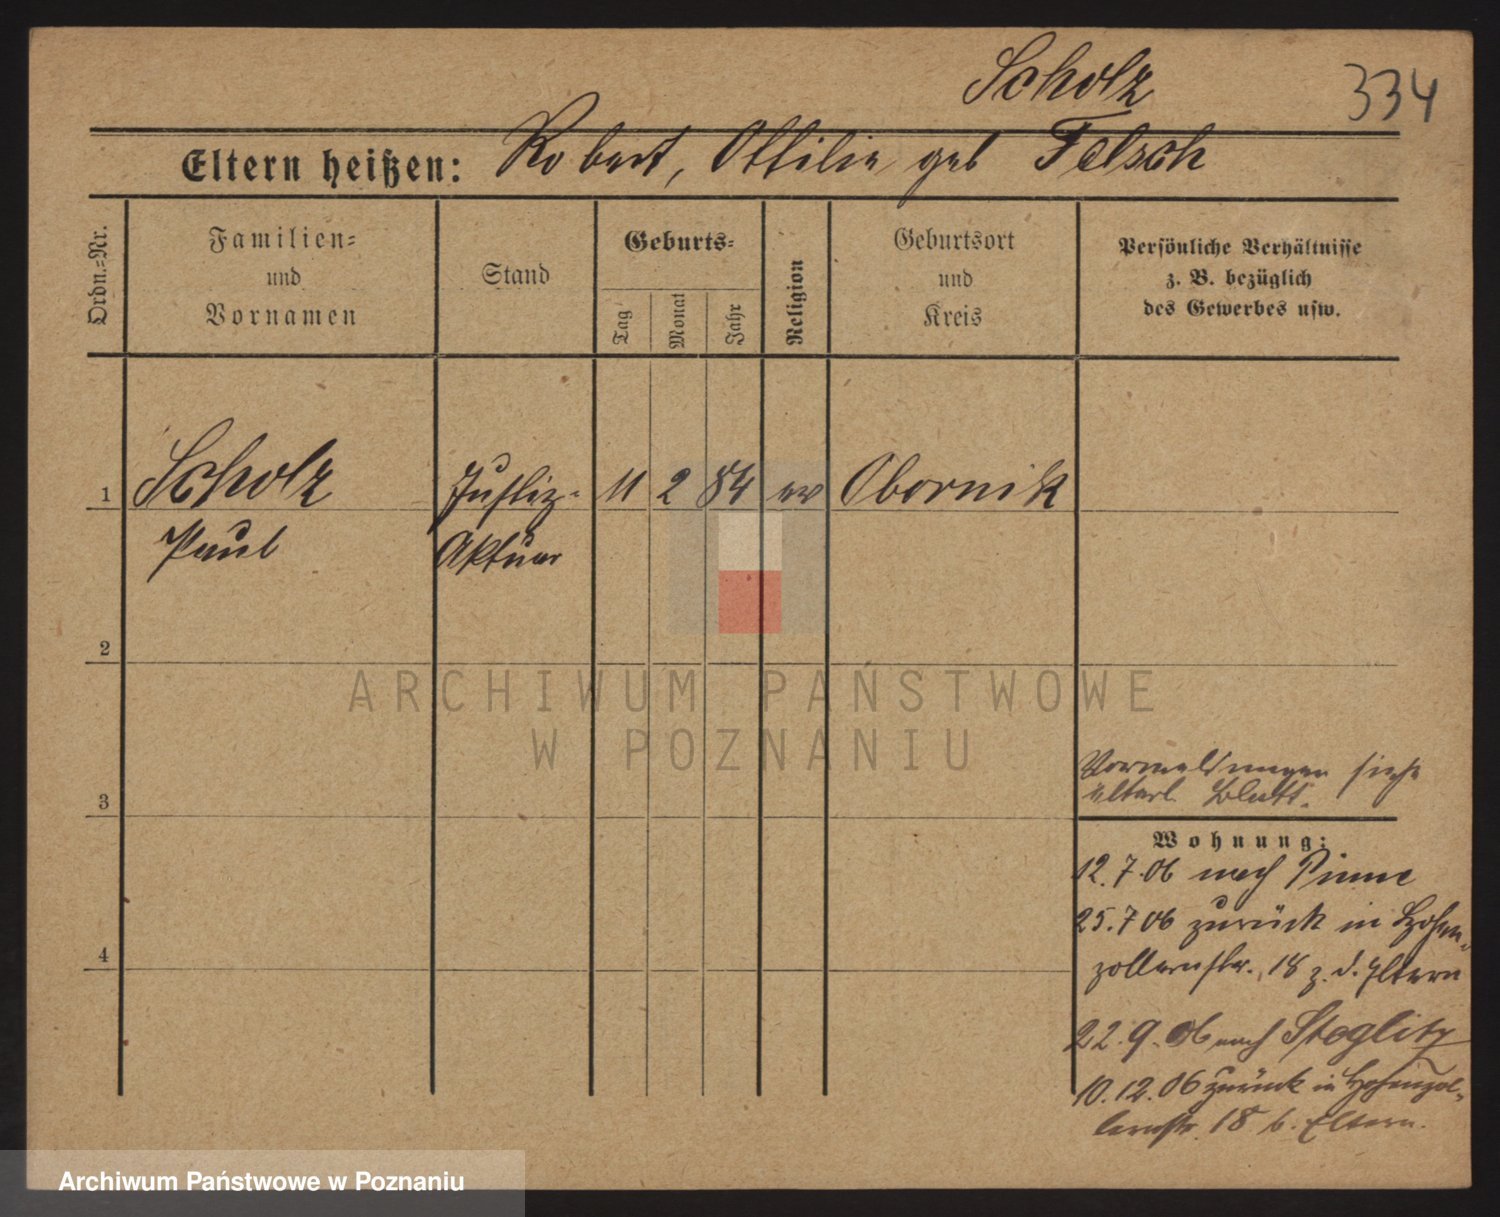 Scholz
334
Eltern heißen: Robert, Ottilie geb Felsch
Ordn.=Nr.
Familien=
und
Vornamen
Stand
Geburts=
Tag
Monat
Jahr
Religion
Geburtsort
und
Kreis
Persönliche Verhältnisse
z. B. bezüglich
des Gewerbes usw.
1
Scholz
Paul
Justiz-
Aktuar
11
2
84
ev
Obornik
2
3
4
ARCHIWUM PAŃSTWOWE
W POZNANIU
Vormeldungen siehe
elterl. Blatt.
Wohnung:
12.7.06 nach Pinne
25.7 06 zurück in Hohen-
zollernstr. 18 z. d. Eltern
22.9.06 nach Steglitz
10.12.06 zurück in Hohenzol-
lernstr. 18 b. Eltern.
Archiwum Państwowe w Poznaniu